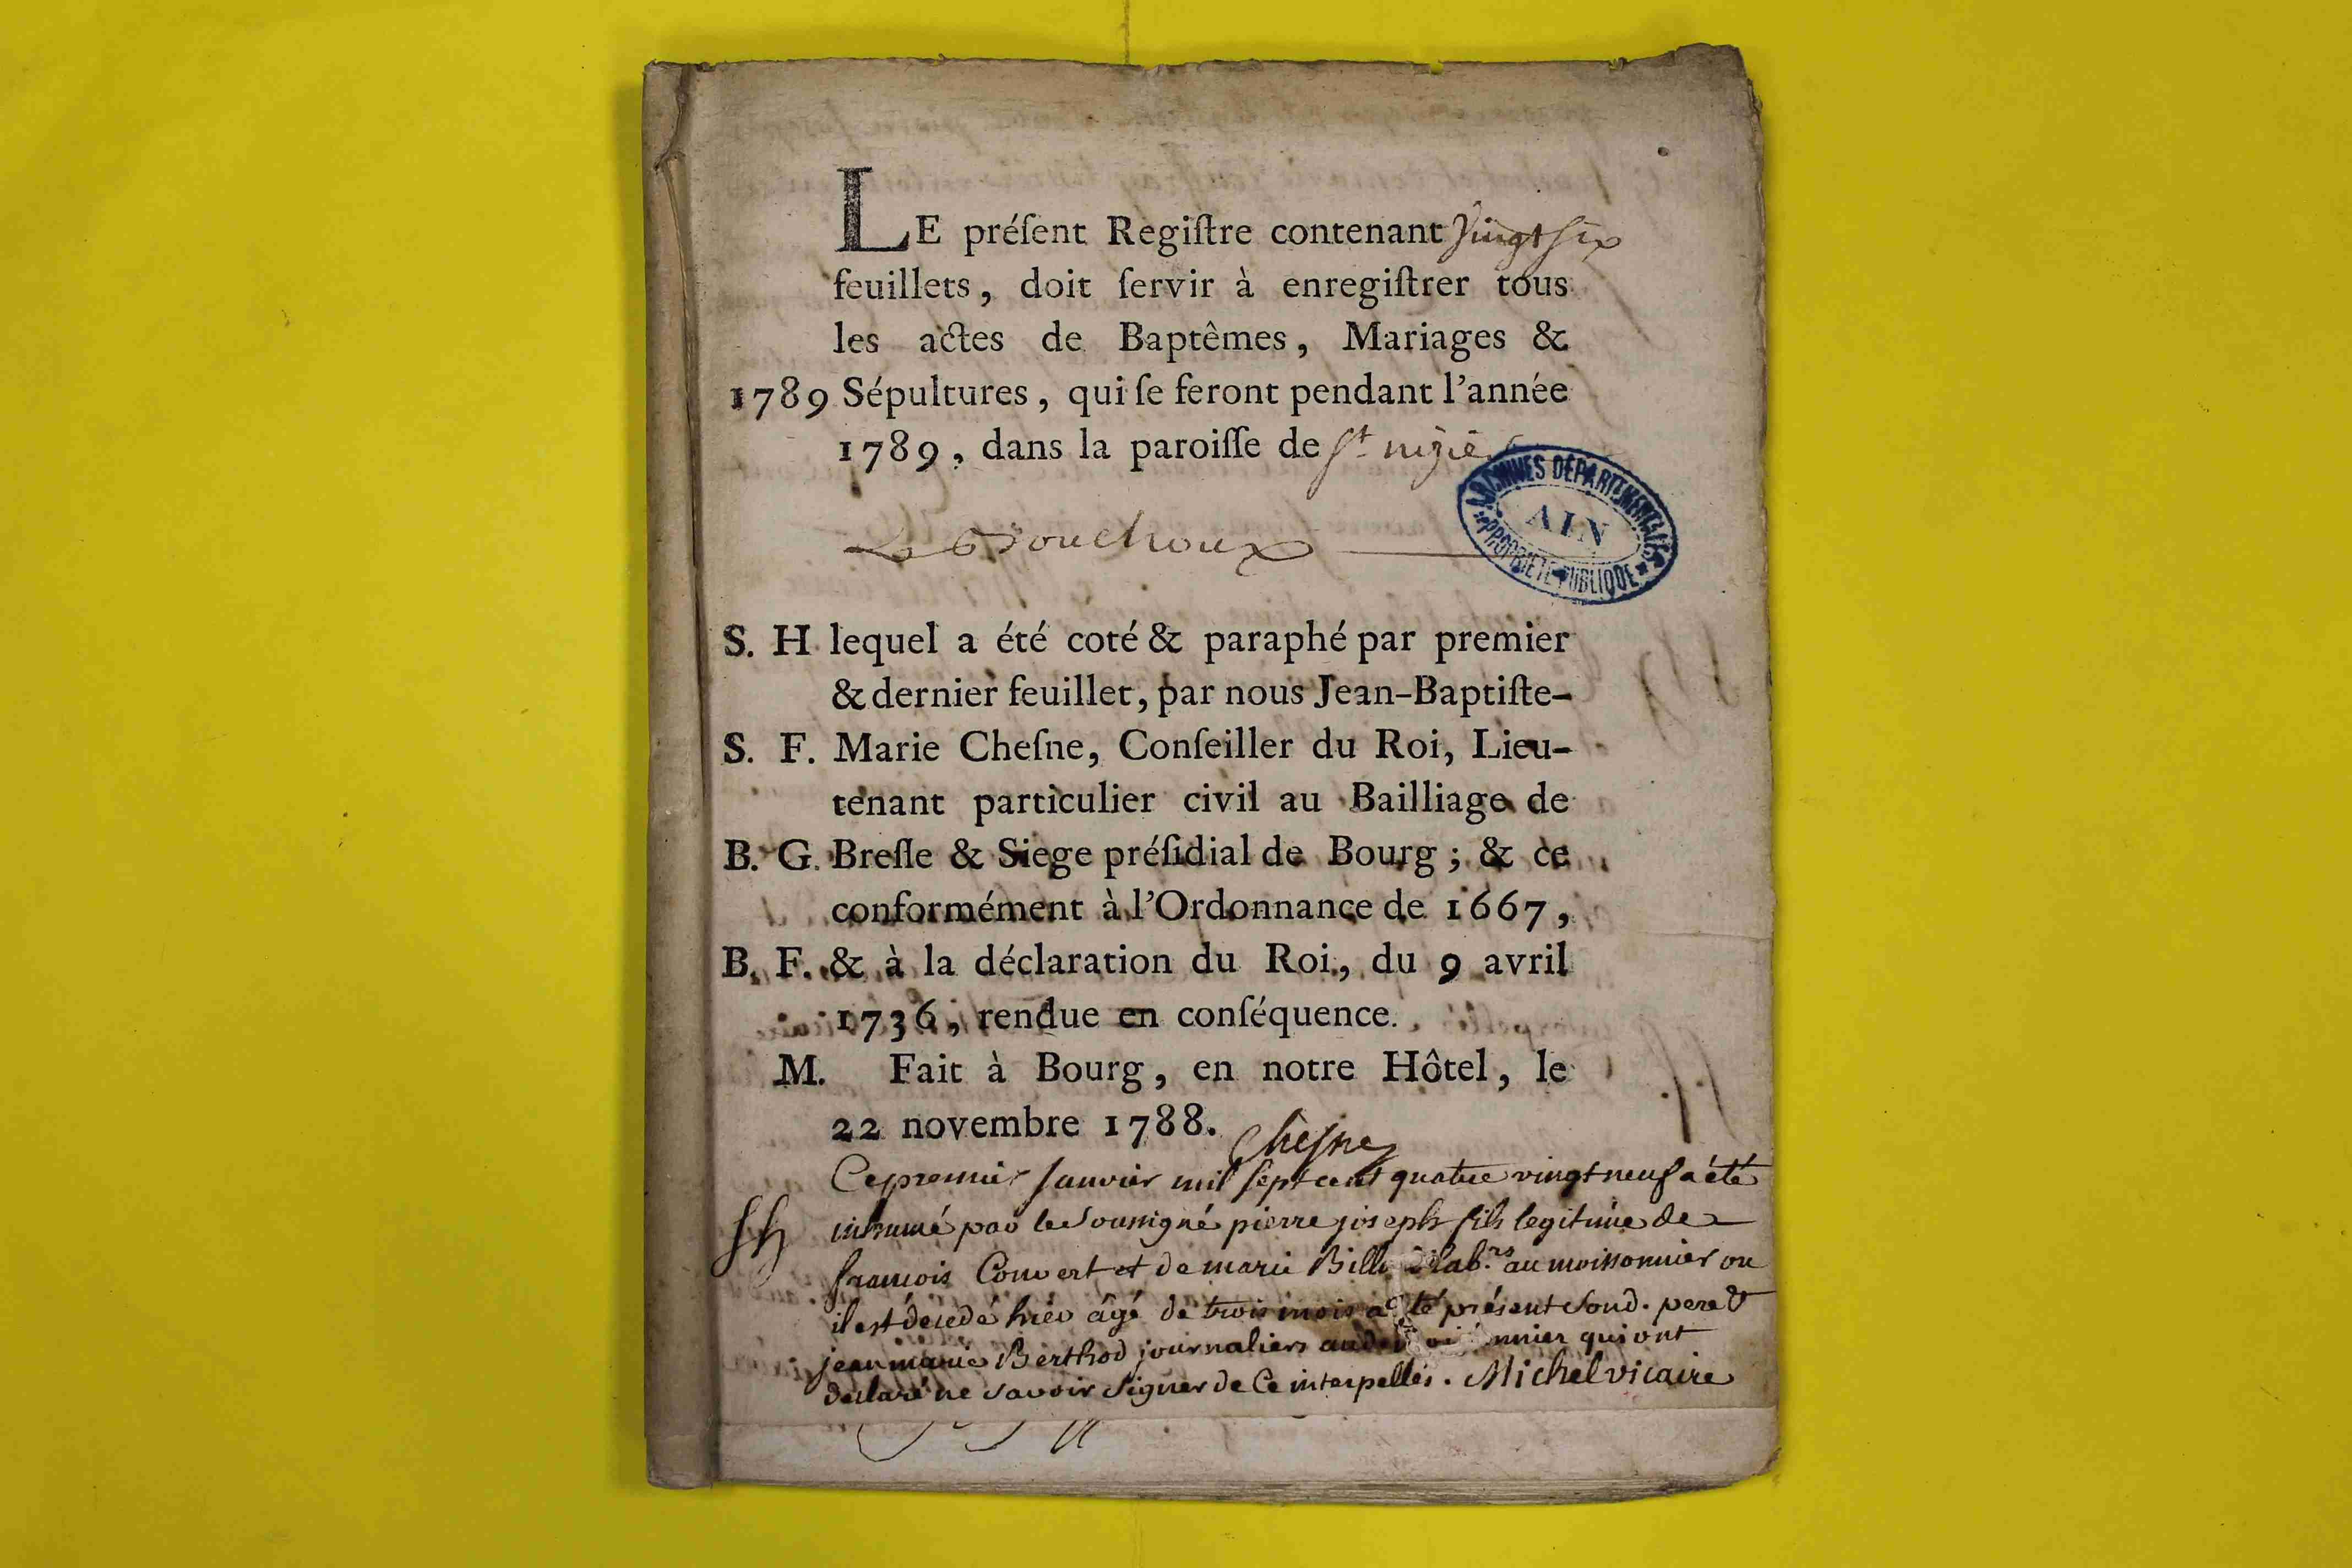 LE préſent Regiſtre contenant Vingt ſix
feuillets, doit ſervir à enregiſtrer tous
les actes de Baptêmes, Mariages &
1789 Sépultures, qui ſe feront pendant l'année
1789, dans la paroiſſe de St nizie
Le Bouchoux
ARCHIVES DÉPARTEMENTALES
AIN
PROPRIÉTÉ PUBLIQUE
S. H lequel a été coté & paraphé par premier
& dernier feuillet, par nous Jean-Baptiſte-
S. F. Marie Cheſne, Conſeiller du Roi, Lieu-
tenant particulier civil au Bailliage de
B. G. Breſſe & Siege préſidial de Bourg ; & ce
conformément à l'Ordonnance de 1667,
B. F. & à la déclaration du Roi, du 9 avril
1736, rendue en conſéquence.
M. Fait à Bourg, en notre Hôtel, le
22 novembre 1788.
Cheſne
Ce premier Janvier mil ſept cent quatre vingt neuf a été
SH inhumé par le Soussigné pierre joseph fils legitime de
francois Convert et de marie Bill lab.rs au moissonnier ou
il est décedé hier âgé de trois mois a té présent soud. pere &
jean marie Berthod journaliers nnier qui ont
declaré ne savoir signer de Ce interpellés. Michel vicaire